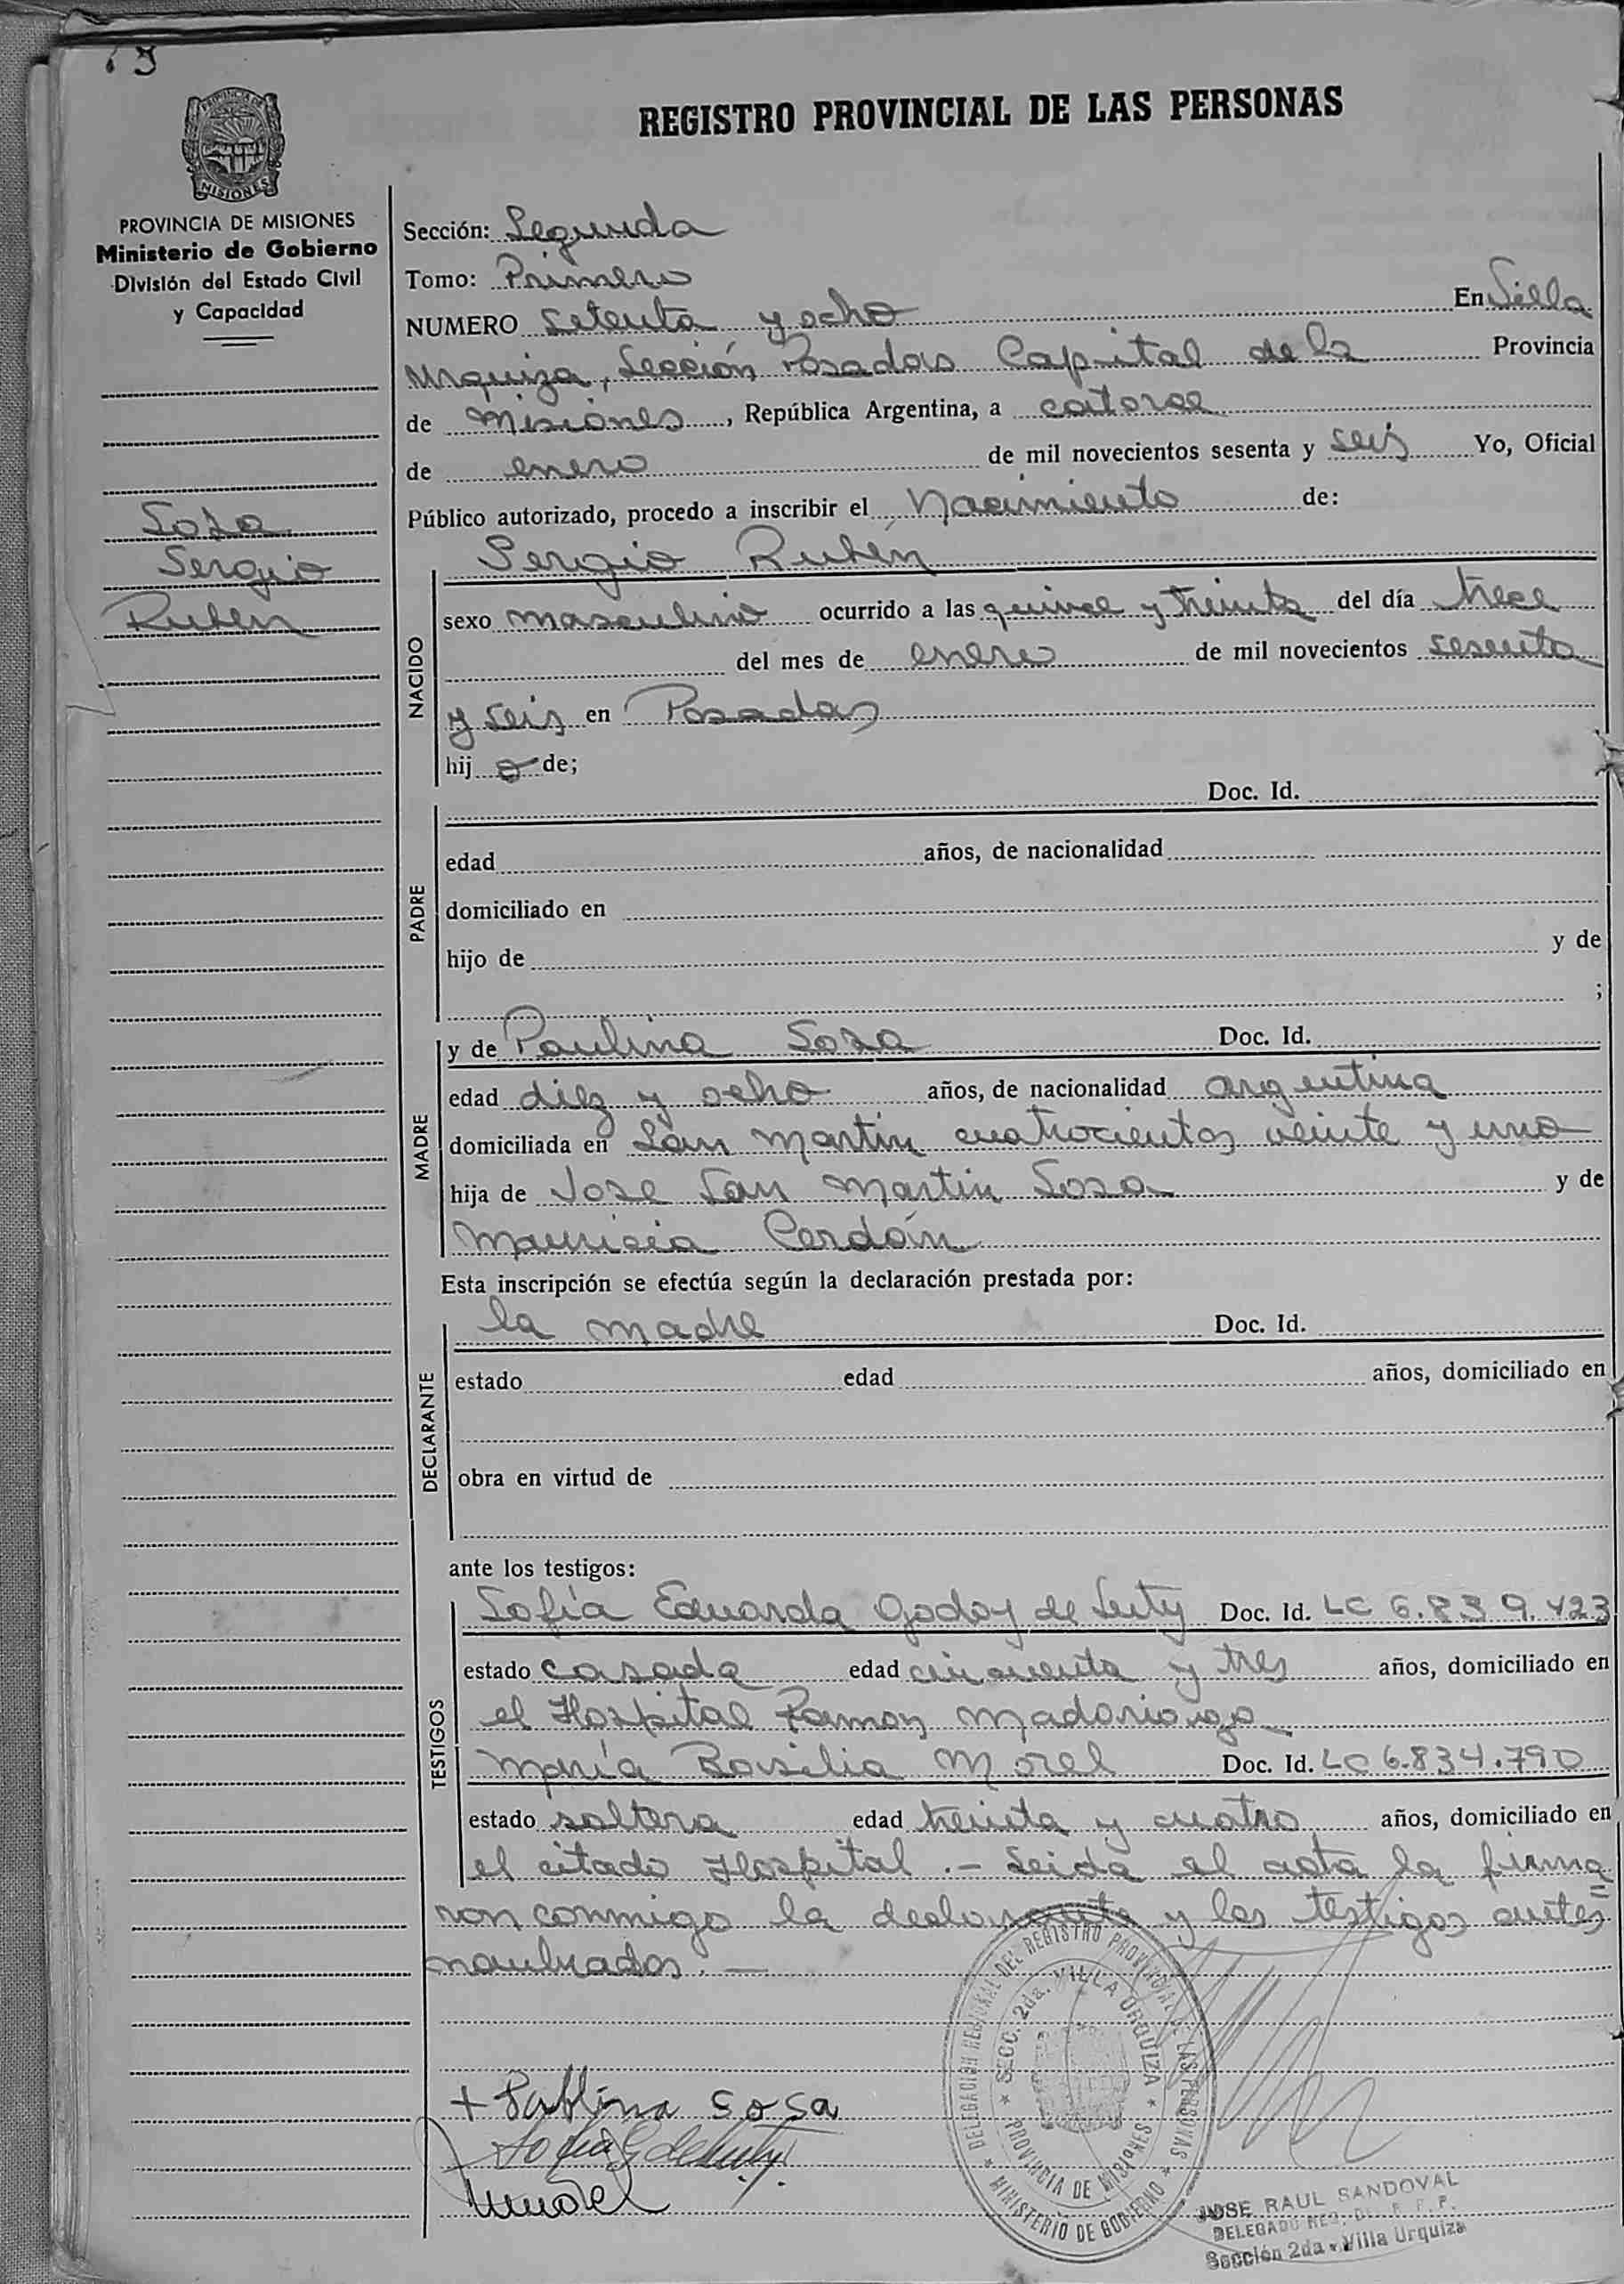 PROVINCIA DE MISIONES
PROVINCIA DE MISIONES
Ministerio de Gobierno
División del Estado Civil
y Capacidad
Sosa
Sergio
Ruben
REGISTRO PROVINCIAL DE LAS PERSONAS
Sección: Segunda
Tomo: Primero
NUMERO Setenta y ocho En Villa
Urquiza, Sección Posadas Capital de la Provincia
de Misiones, República Argentina, a catorce
de enero de mil novecientos sesenta y seis Yo, Oficial
Público autorizado, procedo a inscribir el Nacimiento de:
Sergio Rubén
NACIDO
sexo masculino ocurrido a las quince y treinta del día trece
del mes de enero de mil novecientos sesenta
y seis en Posadas
hijo de;
PADRE
Doc. Id.
edad años, de nacionalidad
domiciliado en
hijo de y de
;
MADRE
y de Paulina Sosa Doc. Id.
edad diez y ocho años, de nacionalidad argentina
domiciliada en San Martín cuatrocientos veinte y uno
hija de Jose San Martin Sosa y de
Mauricia Cardán
Esta inscripción se efectúa según la declaración prestada por:
DECLARANTE
la madre Doc. Id.
estado edad años, domiciliado en
obra en virtud de
ante los testigos:
TESTIGOS
Sofía Eduarda Godoy de Doc. Id. LC 6.839.423
estado casada edad cincuenta y tres años, domiciliado en
el Hospital Ramon Madariaga
María Basilia Morel Doc. Id. LC 6.834.790
estado soltera edad treinta y cuatro años, domiciliado en
el citado Hospital .- Leida el acta la firma=
ron conmigo la declarante y los testigos antes
nombrados.-
+ Pablina sosa
DELEGACIÓN REGIONAL DEL REGISTRO PROVINCIAL DE LAS PERSONAS
SECC. 2da. VILLA URQUIZA
PROVINCIA DE MISIONES
MINISTERIO DE GOBIERNO
JOSE RAUL SANDOVAL
DELEGADO REG. DEL R. P. P.
Sección 2da - Villa Urquiza